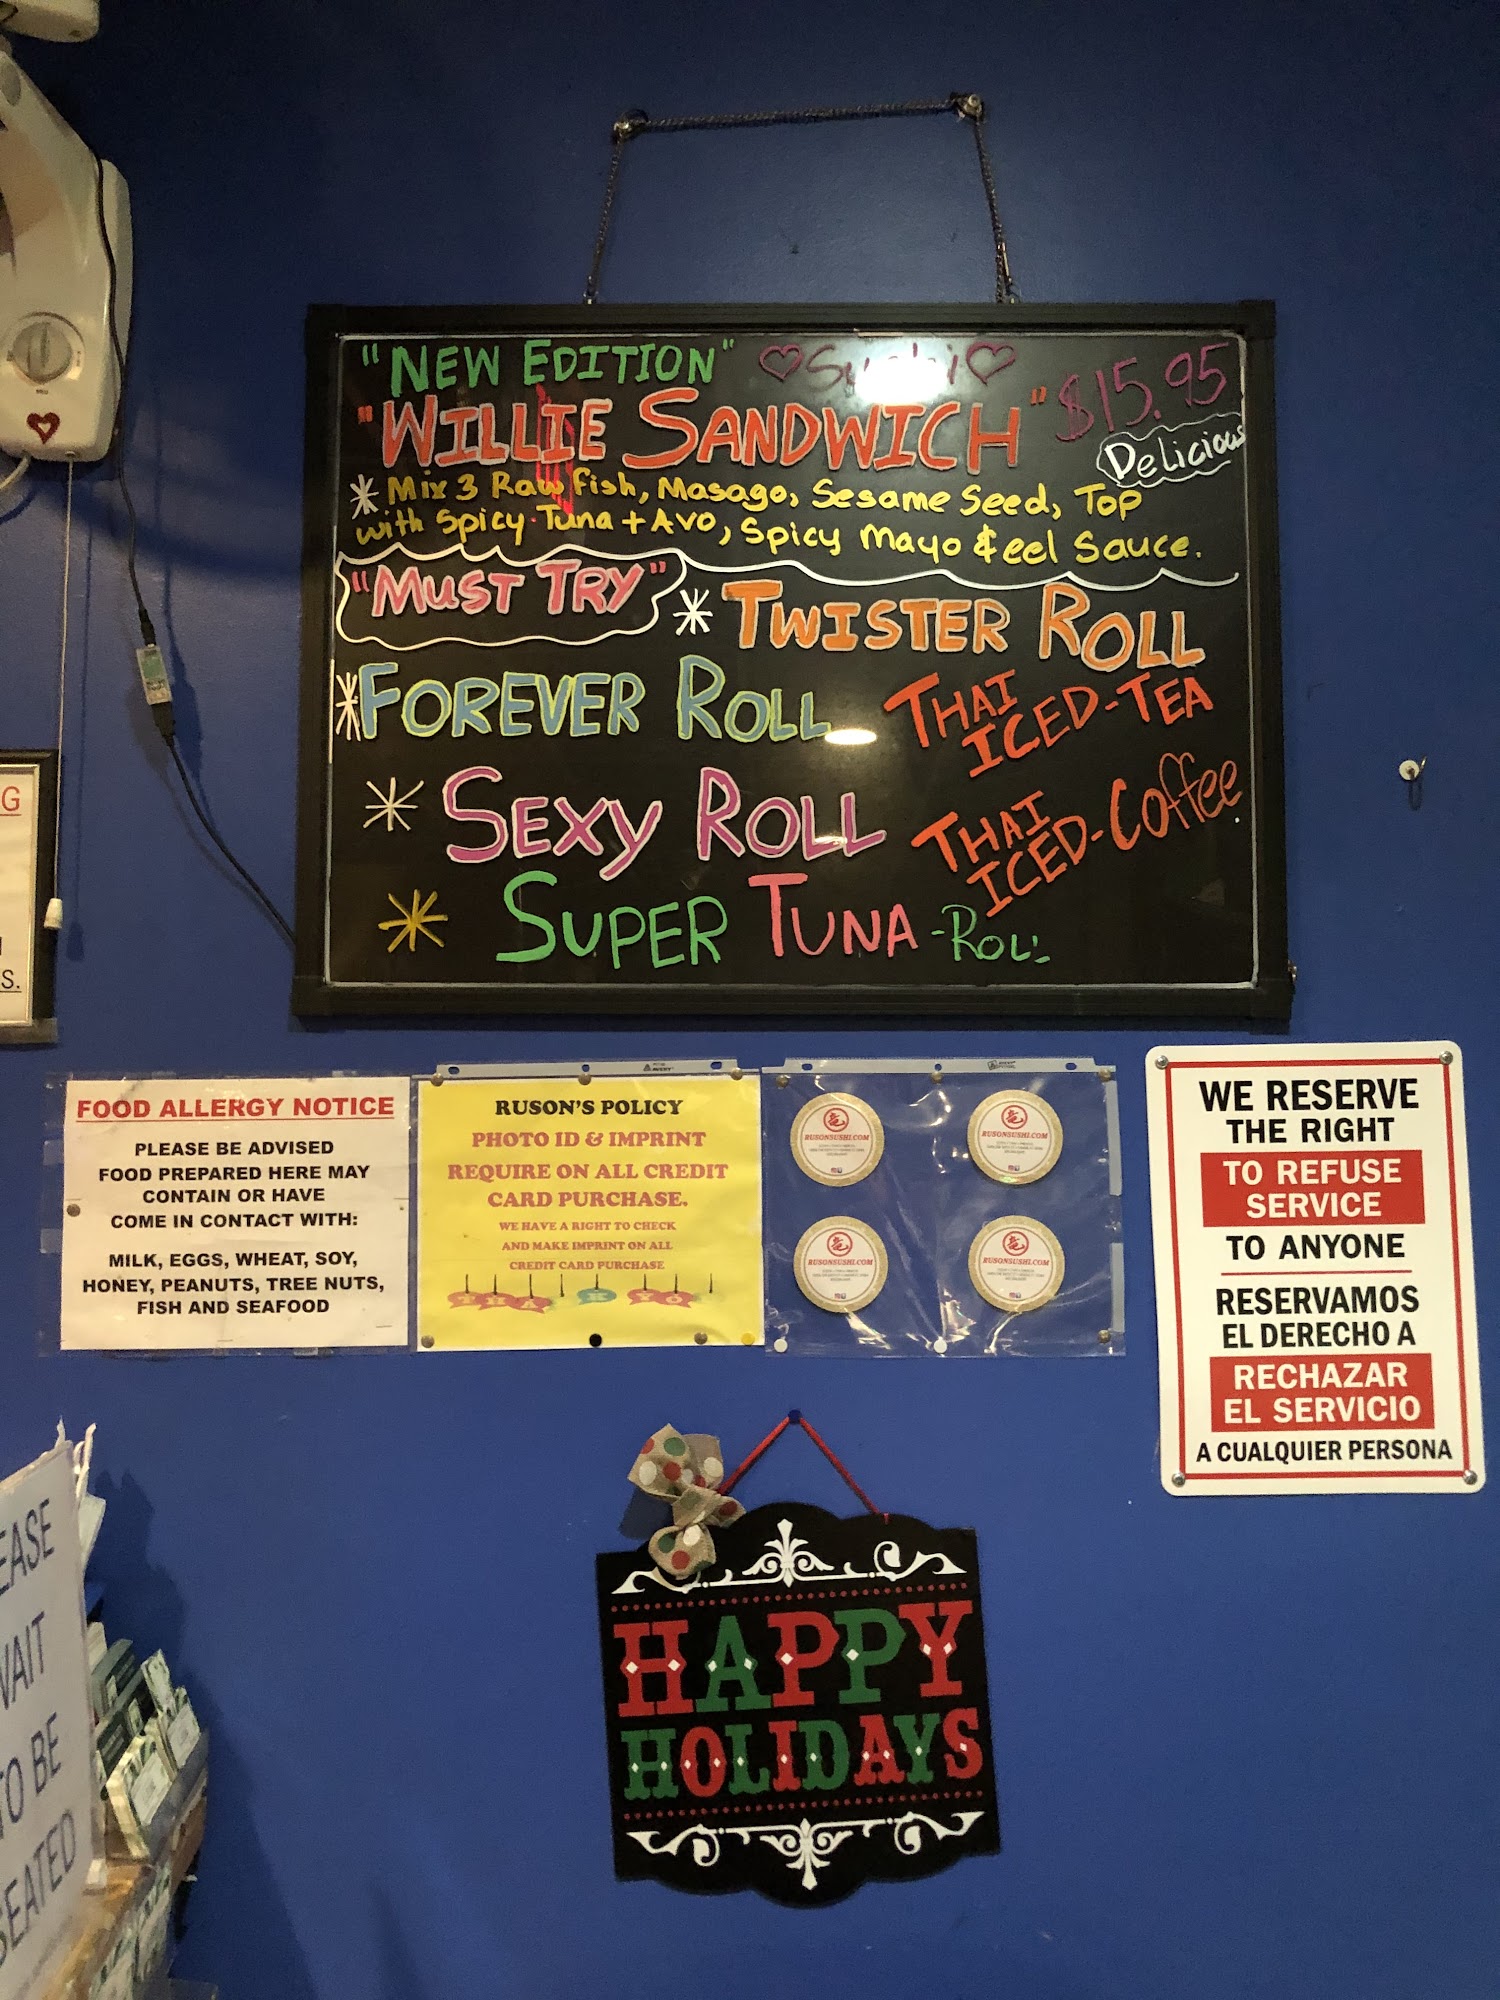 "NEW EDITION" ♡Sushi♡ $15.95
"WILLIE SANDWICH"
Delicious
* Mix 3 Raw fish, Masago, Sesame Seed, Top
with Spicy Tuna + Avo, Spicy Mayo & eel Sauce.
"MUST TRY"
* TWISTER ROLL
* FOREVER ROLL
THAI
ICED-TEA
* SEXY ROLL
THAI
ICED-Coffee
* SUPER TUNA-ROLL
G
S.
FOOD ALLERGY NOTICE
PLEASE BE ADVISED
FOOD PREPARED HERE MAY
CONTAIN OR HAVE
COME IN CONTACT WITH:
MILK, EGGS, WHEAT, SOY,
HONEY, PEANUTS, TREE NUTS,
FISH AND SEAFOOD
AVERY
RUSON'S POLICY
PHOTO ID & IMPRINT
REQUIRE ON ALL CREDIT
CARD PURCHASE.
WE HAVE A RIGHT TO CHECK
AND MAKE IMPRINT ON ALL
CREDIT CARD PURCHASE
RUSONSUSHI.COM
RUSONSUSHI.COM
RUSONSUSHI.COM
RUSONSUSHI.COM
WE RESERVE
THE RIGHT
TO REFUSE
SERVICE
TO ANYONE
RESERVAMOS
EL DERECHO A
RECHAZAR
EL SERVICIO
A CUALQUIER PERSONA
HAPPY
HOLIDAYS
EASE
WAIT
TO BE
SEATED